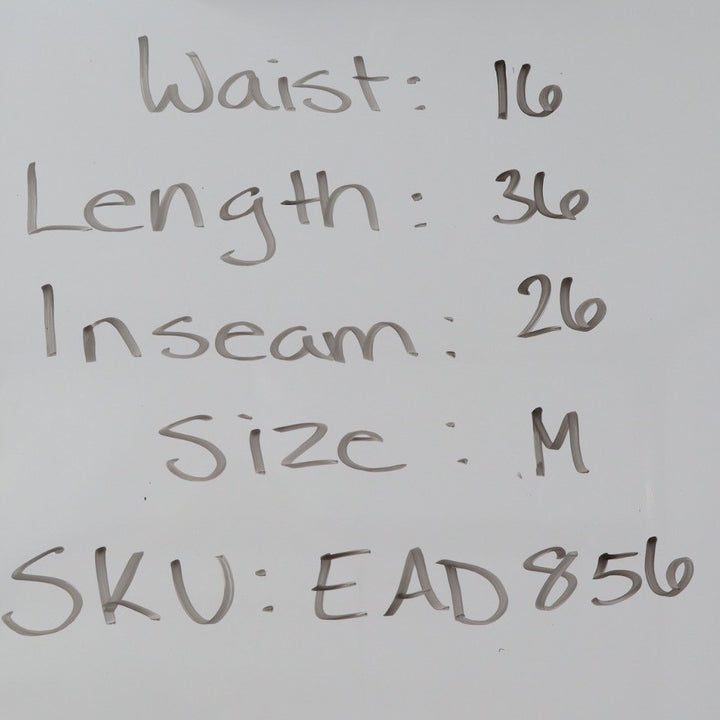 Waist: 16
Length: 36
Inseam: 26
Size: M
SKU: EAD856